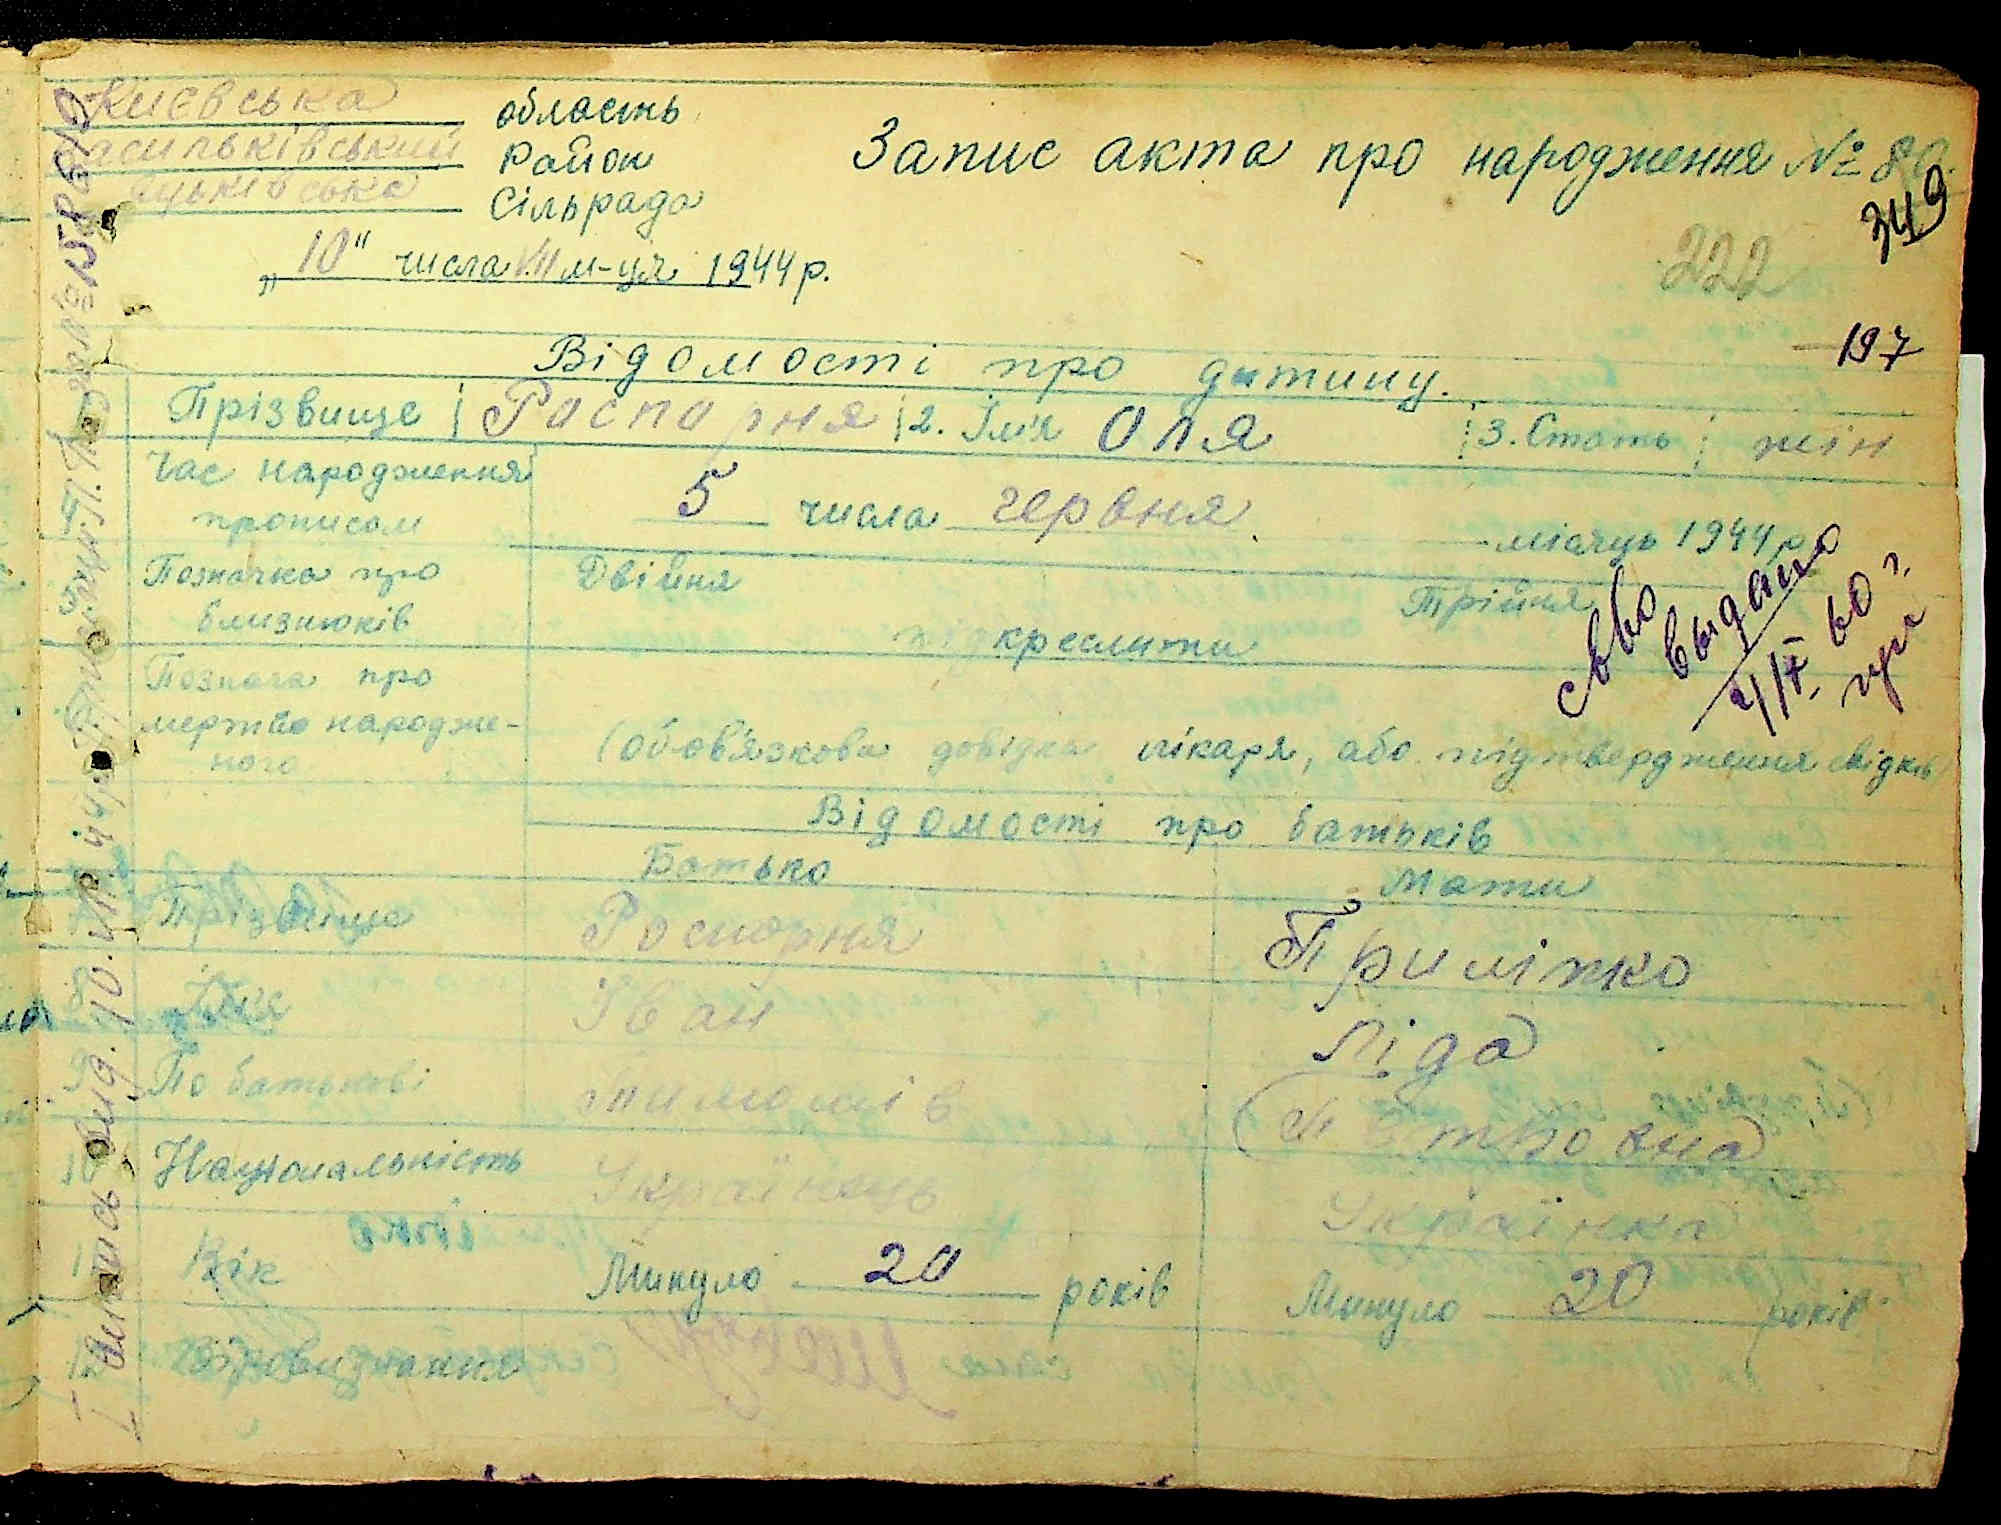 Києвська область
асильківський Район
Сільрада
Запис акта про народження №
349
„10" числа VII м-ця 1944 р.
222
197
Відомості про дитину.
Прізвище Распорня 2. Ім'я Оля 3. Стать жін
Час народження прописом
5 числа червня місяць 1944 р
Позначка про близнюків
Двійня Трійня
підкреслити
Познача про мертво народженого
(обов'язкова довідка лікаря, або підтвердження свідків)
сво выдано
60 г.
Відомості про батьків
Батько Мати
Прізвище Роспорня Приліпко
Ім'я Іван Ліда
По батькові Петровна
Національність Українець Українка
Вік Минуло 20 років Минуло 20 років
Віровизнання